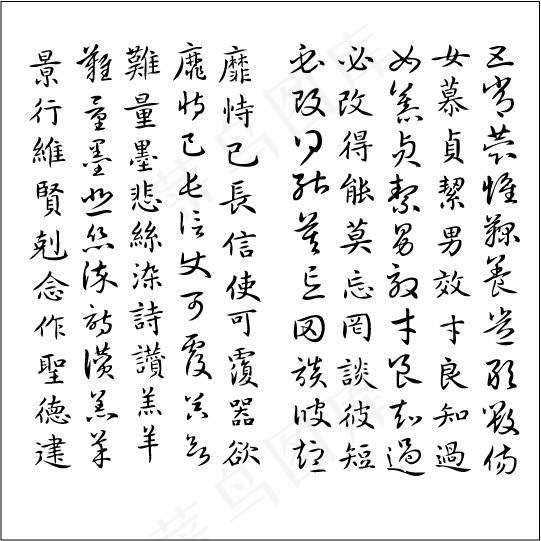 五常恭惟鞠養豈敢毀傷
女慕貞絜男效才良知過
女慕貞絜男效才良知過
必改得能莫忘罔談彼短
必改得能莫忘罔談彼短
靡恃己長信使可覆器欲
靡恃己長信使可覆器欲
難量墨悲絲染詩讚羔羊
難量墨悲絲染詩讚羔羊
景行維賢剋念作聖德建
菜鸟图库